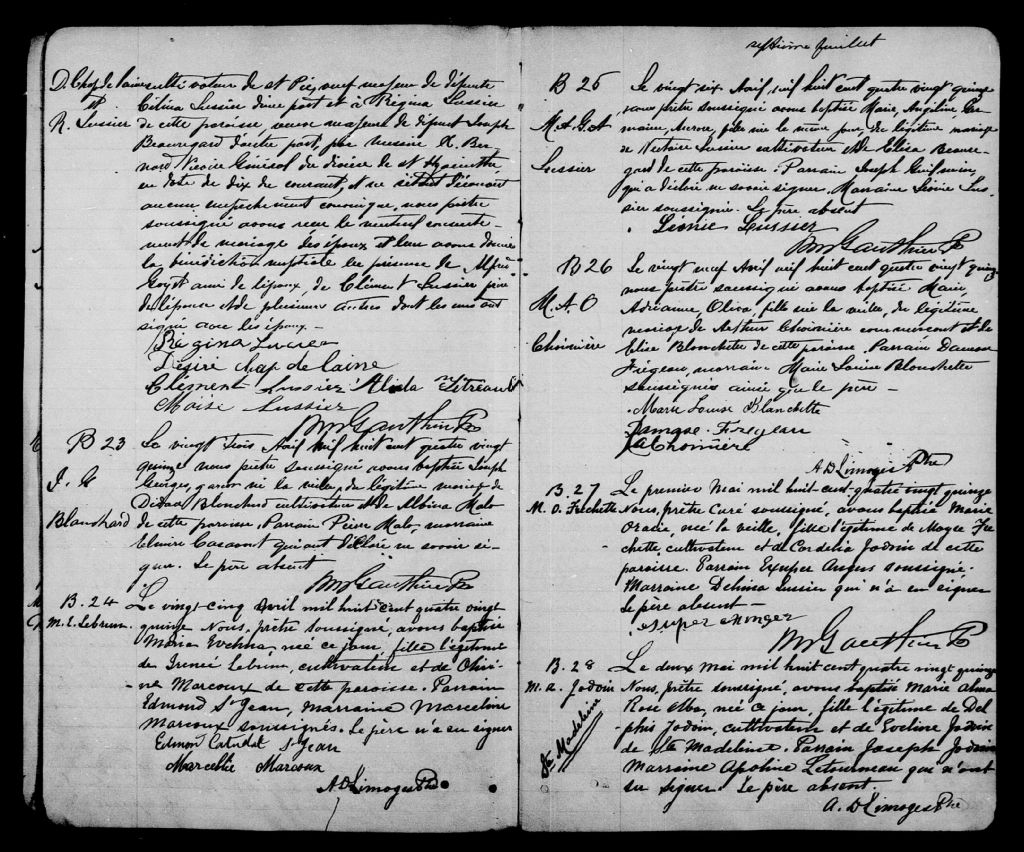 D. Chap de laine cultivateur de st Pie, veuf majeur de défunte
et Célina Lussier d'une part et à Régina Lussier
R. Lussier de cette paroisse, veuve majeure de défunt Joseph
Beauregard d'autre part, par messire
Vicaire Général du diocèse de st Hyacinthe,
en date de dix du courant, et ne s'étant découvert
aucun empêchement nous prêtre
soussigné avons reçu le mutuel consente-
ment de mariage des époux et leur avons donné
la bénédiction nuptiale en présence de Alfred
Goyet ami de l'époux, de Clément Lussier père
de l'épouse et de plusieurs autres dont les uns ont
signé avec les époux —
Régina Lucier
Désiré Chap de laine
Clément Lussier Alida
Moïse Lussier
M Gauthier Ptre
B 23 Le vingt trois Avril mil huit cent quatre vingt
quinze nous prêtre soussigné avons baptisé Joseph
J. G Georges, garçon né la veille, du légitime mariage de
Blanchard cultivateur et de Albina Malo
Blanchard de cette paroisse. Parrain Pierre Malo, marraine
Casavant qui ont déclaré ne savoir si-
gner. Le père absent
M Gauthier Ptre
B. 24 Le vingt-cinq Avril mil huit cent quatre vingt
M. E. Lebrun quinze Nous, prêtre soussigné, avons baptisé
Maria Evelina, née ce jour, fille légitime
de Irenée Lebrun, cultivateur et de Olivi-
ne Marcoux de cette paroisse. Parrain
Edmond St Jean, Marraine Marceline
Marcoux soussignés. Le père n'a su signer
Edmond St Jean
Marceline Marcoux
A D Limoges Ptre
septième feuillet
B 25 Le vingt six Avril mil huit cent quatre vingt quinze
nous prêtre soussigné avons baptisé Marie, Angéline, Ger-
M. A. G. A maine, Aurore, fille née le même jour, du légitime mariage
de Nectaire Lussier cultivateur et de Eliza Beaure-
Lussier gard de cette paroisse. Parrain Joseph
qui a déclaré ne savoir signer, Marraine Léonie Lus-
sier soussignée. Le père absent
Léonie Lussier
M Gauthier Ptre
B 26 Le vingt neuf Avril mil huit cent quatre vingt quinze
nous prêtre soussigné avons baptisé Marie,
M. A. O Adrianne, Oliva, fille née la veille, du légitime
mariage de Arthur Choinière commerçant et de
Choinière Elise Blanchette de cette paroisse. Parrain Damase
Fregeau, marraine Marie Louise Blanchette
soussignés ainsi que le père —
Marie Louise Blanchette
Damase Fregeau
A Choinière
A D Limoges Ptre
B. 27 Le premier Mai mil huit cent quatre vingt quinze
M. O. Frechette Nous, prêtre Curé soussigné, avons baptisé Marie
Orasie, née la veille, fille légitime de Moyse Fré-
chette, cultivateur et de Cordelia Jodoin de cette
paroisse. Parrain Exuper Anger soussigné.
Marraine Delima Lussier qui n'a su signer
Le père absent —
Exuper Anger
M Gauthier Ptre
B. 28 Le deux Mai mil huit cent quatre vingt quinze
M. A. Jodoin Nous, prêtre soussigné, avons baptisé Marie Alma
Rose Alba, née ce jour, fille légitime de Del-
Ste Madeleine phis Jodoin, cultivateur et de Eveline Jodoin
de Ste Madeleine. Parrain Joseph Jodoin
Marraine Apoline Letourneau qui n'ont
su signer. Le père absent.
A. D Limoges Ptre